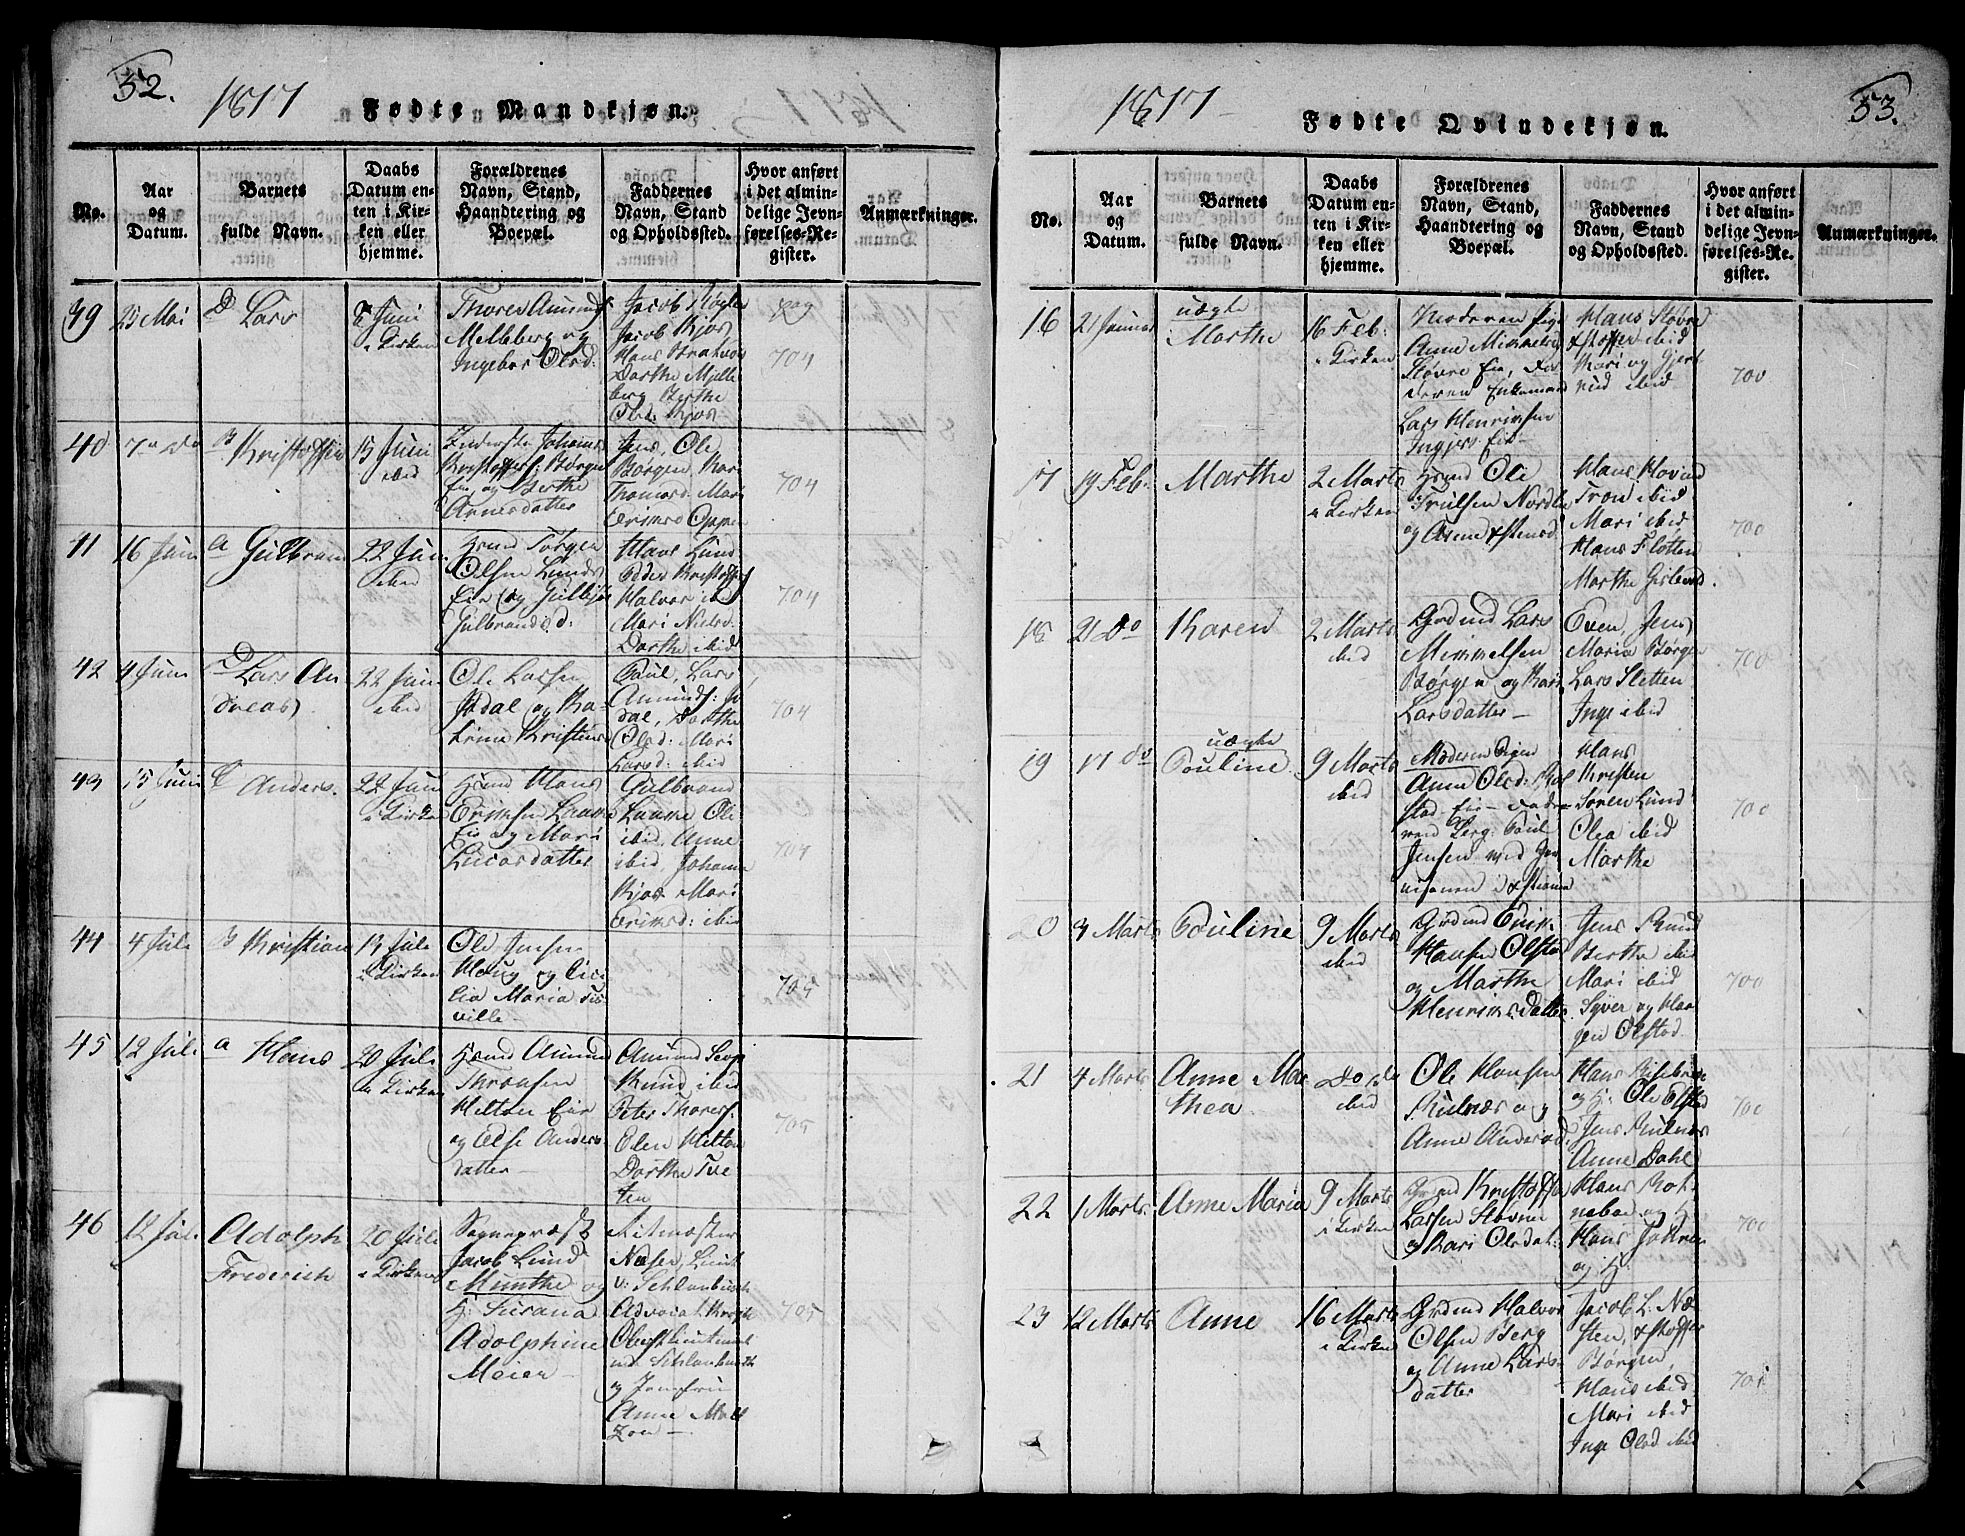 52.
1817
Fødte Mandkjøn.
No.
Aar
og
Datum.
Barnets
fulde Navn.
Daabs
Datum en-
ten i Kir-
ken eller
hjemme.
Forældrenes
Navn, Stand,
Haandtering og
Boepæl.
Faddernes
Navn, Stand
og Opholdssted.
Hvor anført
i det almin-
delige Jevn-
førelses-Re-
gister.
Anmærkninger.
39
25 Mai
Lars
Juni
i Kirken
Thores Amunds
Melleberg og
Ingebor Olsd:
Jacob
Jacob Kjos
Hans
Dorthe Melle
berg Berthe
Olsd. Kjos
704
40
7 do
Kristoffer
15 Juni
ibid
Johannes
Kristoffers: Børgen
Eie og Berthe
Arnesdatter
Jens, Ole
Børgen, Kari
Thomasd. Mari
Eriksd Oppen
704
41
16 Juni
Gulbrand
22 Juni
ibid
Hsmd Jørgen
Olsen Lunds
Eie og
Gulbrandsd:
Hans Lund
Peder Kristoffers
Halvor ibid
Mari Nielsd.
Dorthe ibid
704
42
4 Juni
Lars An
dreas
22 Juni
ibid
Ole Larsen
Jødal og Ka-
trine Kristians
Poul, Lars
Amunds: Jø
dal, Dorthe
Olsd: Mari
Larsd: ibid
704
43
15 Juni
Anders.
22 Juni
i Kirken
Hsmd Hans
Eriksen Laake
Eie og Mari
Lucasdatter
Gulbrand
Laake Ole
ibid, Anne
ibid, Johanne
Kjos Mari
Eriksd: ibid
704
44
4 Juli
Kristian
13 Juli
i Kirken
Ole Jensen
Haug og Ceci
lia Maria Sie
ville
705
45
12 Juli
Hans
20 Juli
i Kirken
Hsmd Amund
Thronsen
Helton Eie
og Else Anders
datter
Amund
Knud ibid
Peter Thores:
Elen Helton
Dorthe Tve
ten
705
46
12 Juli
Adolph
Frederich
20 Juli
i Kirken
Sognepræst
Jacob Lund
Munthe og
H: Susana
Adolphine
Meier
Ritmester
Næser, Lieut
v: Schlanbusch
Advocat
Oberstlieutenant
von Schlanbusch
og Jomfrue
Anne Molt
zon
705
53.
1817
Fødte Qvindekjøn.
No.
Aar
og
Datum.
Barnets
fulde Navn.
Daabs
Datum en-
ten i Kir-
ken eller
hjemme.
Forældrenes
Navn, Stand,
Haandtering og
Boepæl.
Faddernes
Navn, Stand
og Opholdssted.
Hvor anført
i det almin-
delige Jevn-
førelses-Re-
gister.
Anmærkninger.
16
21 Januar
uægte
Marthe
16 Feb:
i Kirken
Moderen Pige
Anne Mikkelsd
Støvre Eie, Fa
deren Enkemand
Lars Henriksen
Eie
Hans Støvre
Xstoffer ibid
Mari og Gjert
rud ibid
700
17
19 Feb.
Marthe
2 Marts
i Kirken
Hsmd Ole
Trulsen Nordli
og Anne Xstensd
Hans
Tron ibid
Mari ibid
Hans Fløtten
Marthe
700
18
21 do
Karen
2 Marts
ibid
Grdmd Lars
Mikkelsen
Børgen og Kari
Larsdatter
Even, Jens
Maria Børgen
Lars Sletten
Inge ibid
700
19
17 do
uægte
Pouline
9 Marts
ibid
Moderen Pigen
Anne Olsd: Røl
stad Eie Fade
ren Serg: Poul
Jensen
Hans
Kristen
Søren Lund
Olea ibid
Marthe
700
20
3 Marts
Pouline
9 Marts
ibid
Grdmd Erik
Hansen Ølstad
og Marthe
Henriksdatter
Jens Rund
Berthe ibid
Mari ibid
Syver og Haa
gen Ølstad
700
21
4 Marts
Anne Ma
thea
Do
ibid
Ole Hansen
Kulnæs og
Anne Andersd.
Hans Risebroe
og H: Ole Ølstad
Jens Kulnæs
Anne Dahl
700
22
1 Marts
Anne Maria
9 Marts
i Kirken
Grdmd Kristoffer
Larsen Støvne
og Kari Olsdat:
Hans Rot
neboe og H:
Hans
og H:
700
23
12 Marts
Anne
16 Marts
i Kirken
Grdmd Halvor
Olsen Berg
og Anne Lars-
datter
Jacob L. Næ
sten, Xstoffer
Børgen,
Hans ibid
Mari ibid
Inge Olsd ibid
701